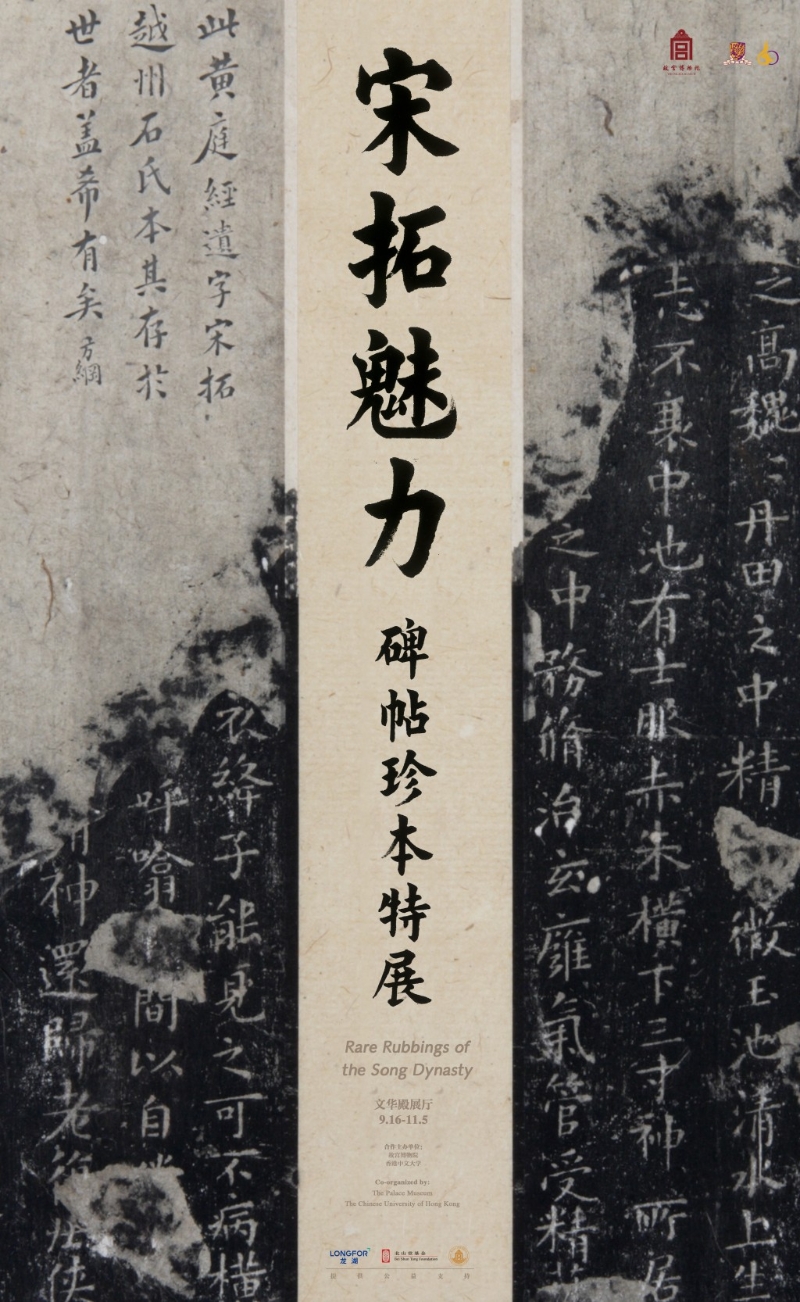 宋拓魅力
碑帖珍本特展
Rare Rubbings of
the Song Dynasty
文华殿展厅
9.16-11.5
合作主办单位:
故宫博物院
香港中文大学
Co-organized by:
The Palace Museum
The Chinese University of Hong Kong
LONGFOR
龙湖
故宫博物院
此黄庭經遺字宋拓
越州石氏本其存於
世者盖希有矣 方綱
之高魏〻丹田之中精
微玉池清水上生
志不衰中池有士服赤朱横下三寸神所居
之中務脩治玄廱氣管受精
衣絳子能見之可不病横
呼噏
間以自
神還歸老
俠